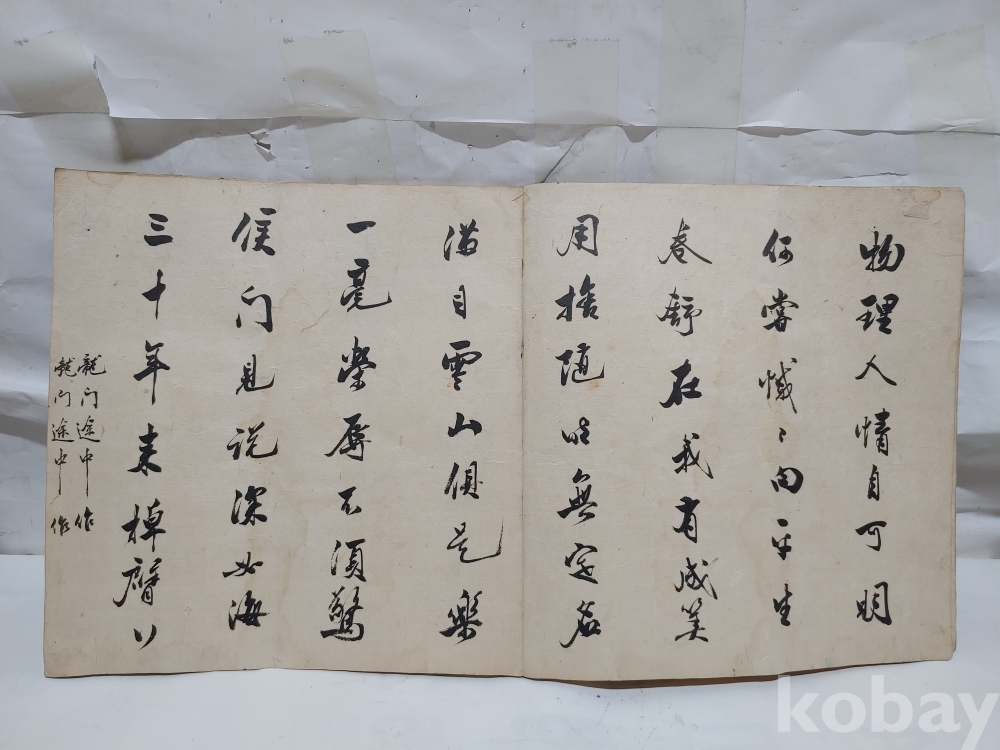 物理人情自可明
何嘗慽〻向平生
卷舒在我有成筭
用捨隨时無定名
满目雲山俱是樂
一毫榮辱不須驚
侯门見说深如海
三十年来掉臂行
龍门途中作
龍门途中作
kobay